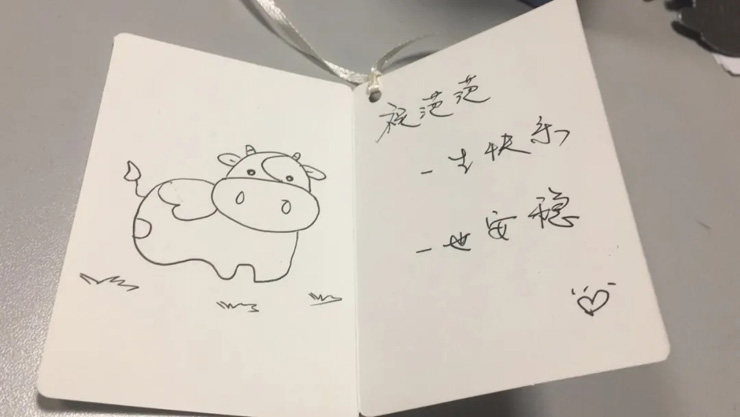 祝范范
一生快乐
一世安稳